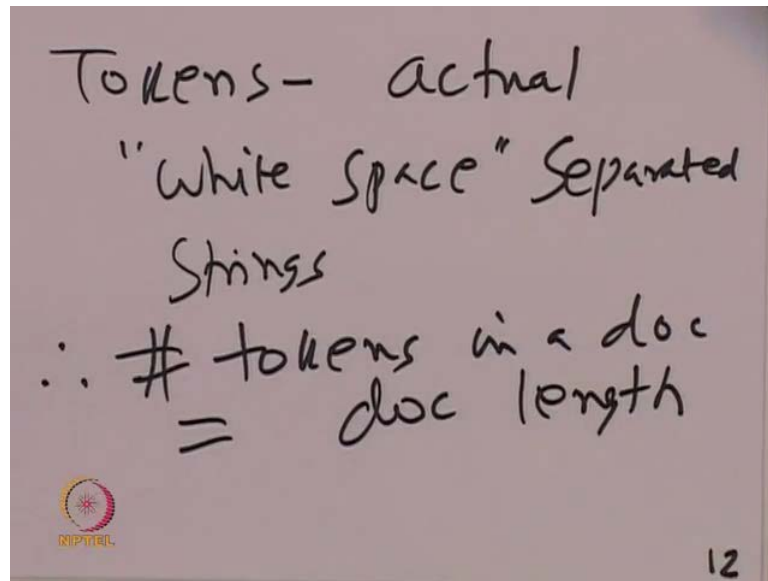 Tokens - actual
"White Space" Separated
Strings
∴ # tokens in a doc
= doc length
NPTEL
12